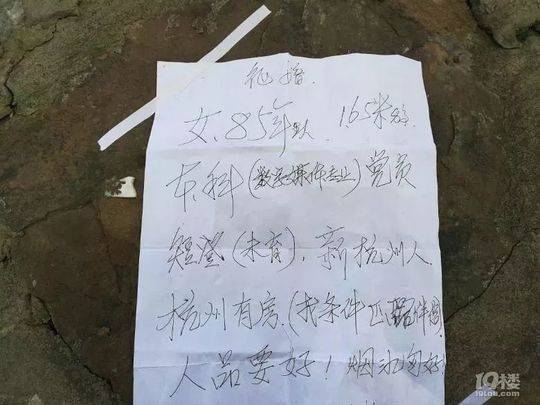 征婚.
女、85年 1.65米
本科(数字媒体专业)党员
短婚(未育),新杭州人.
杭州有房.(找条件匹配
人品要好!烟
19楼
19lou.com